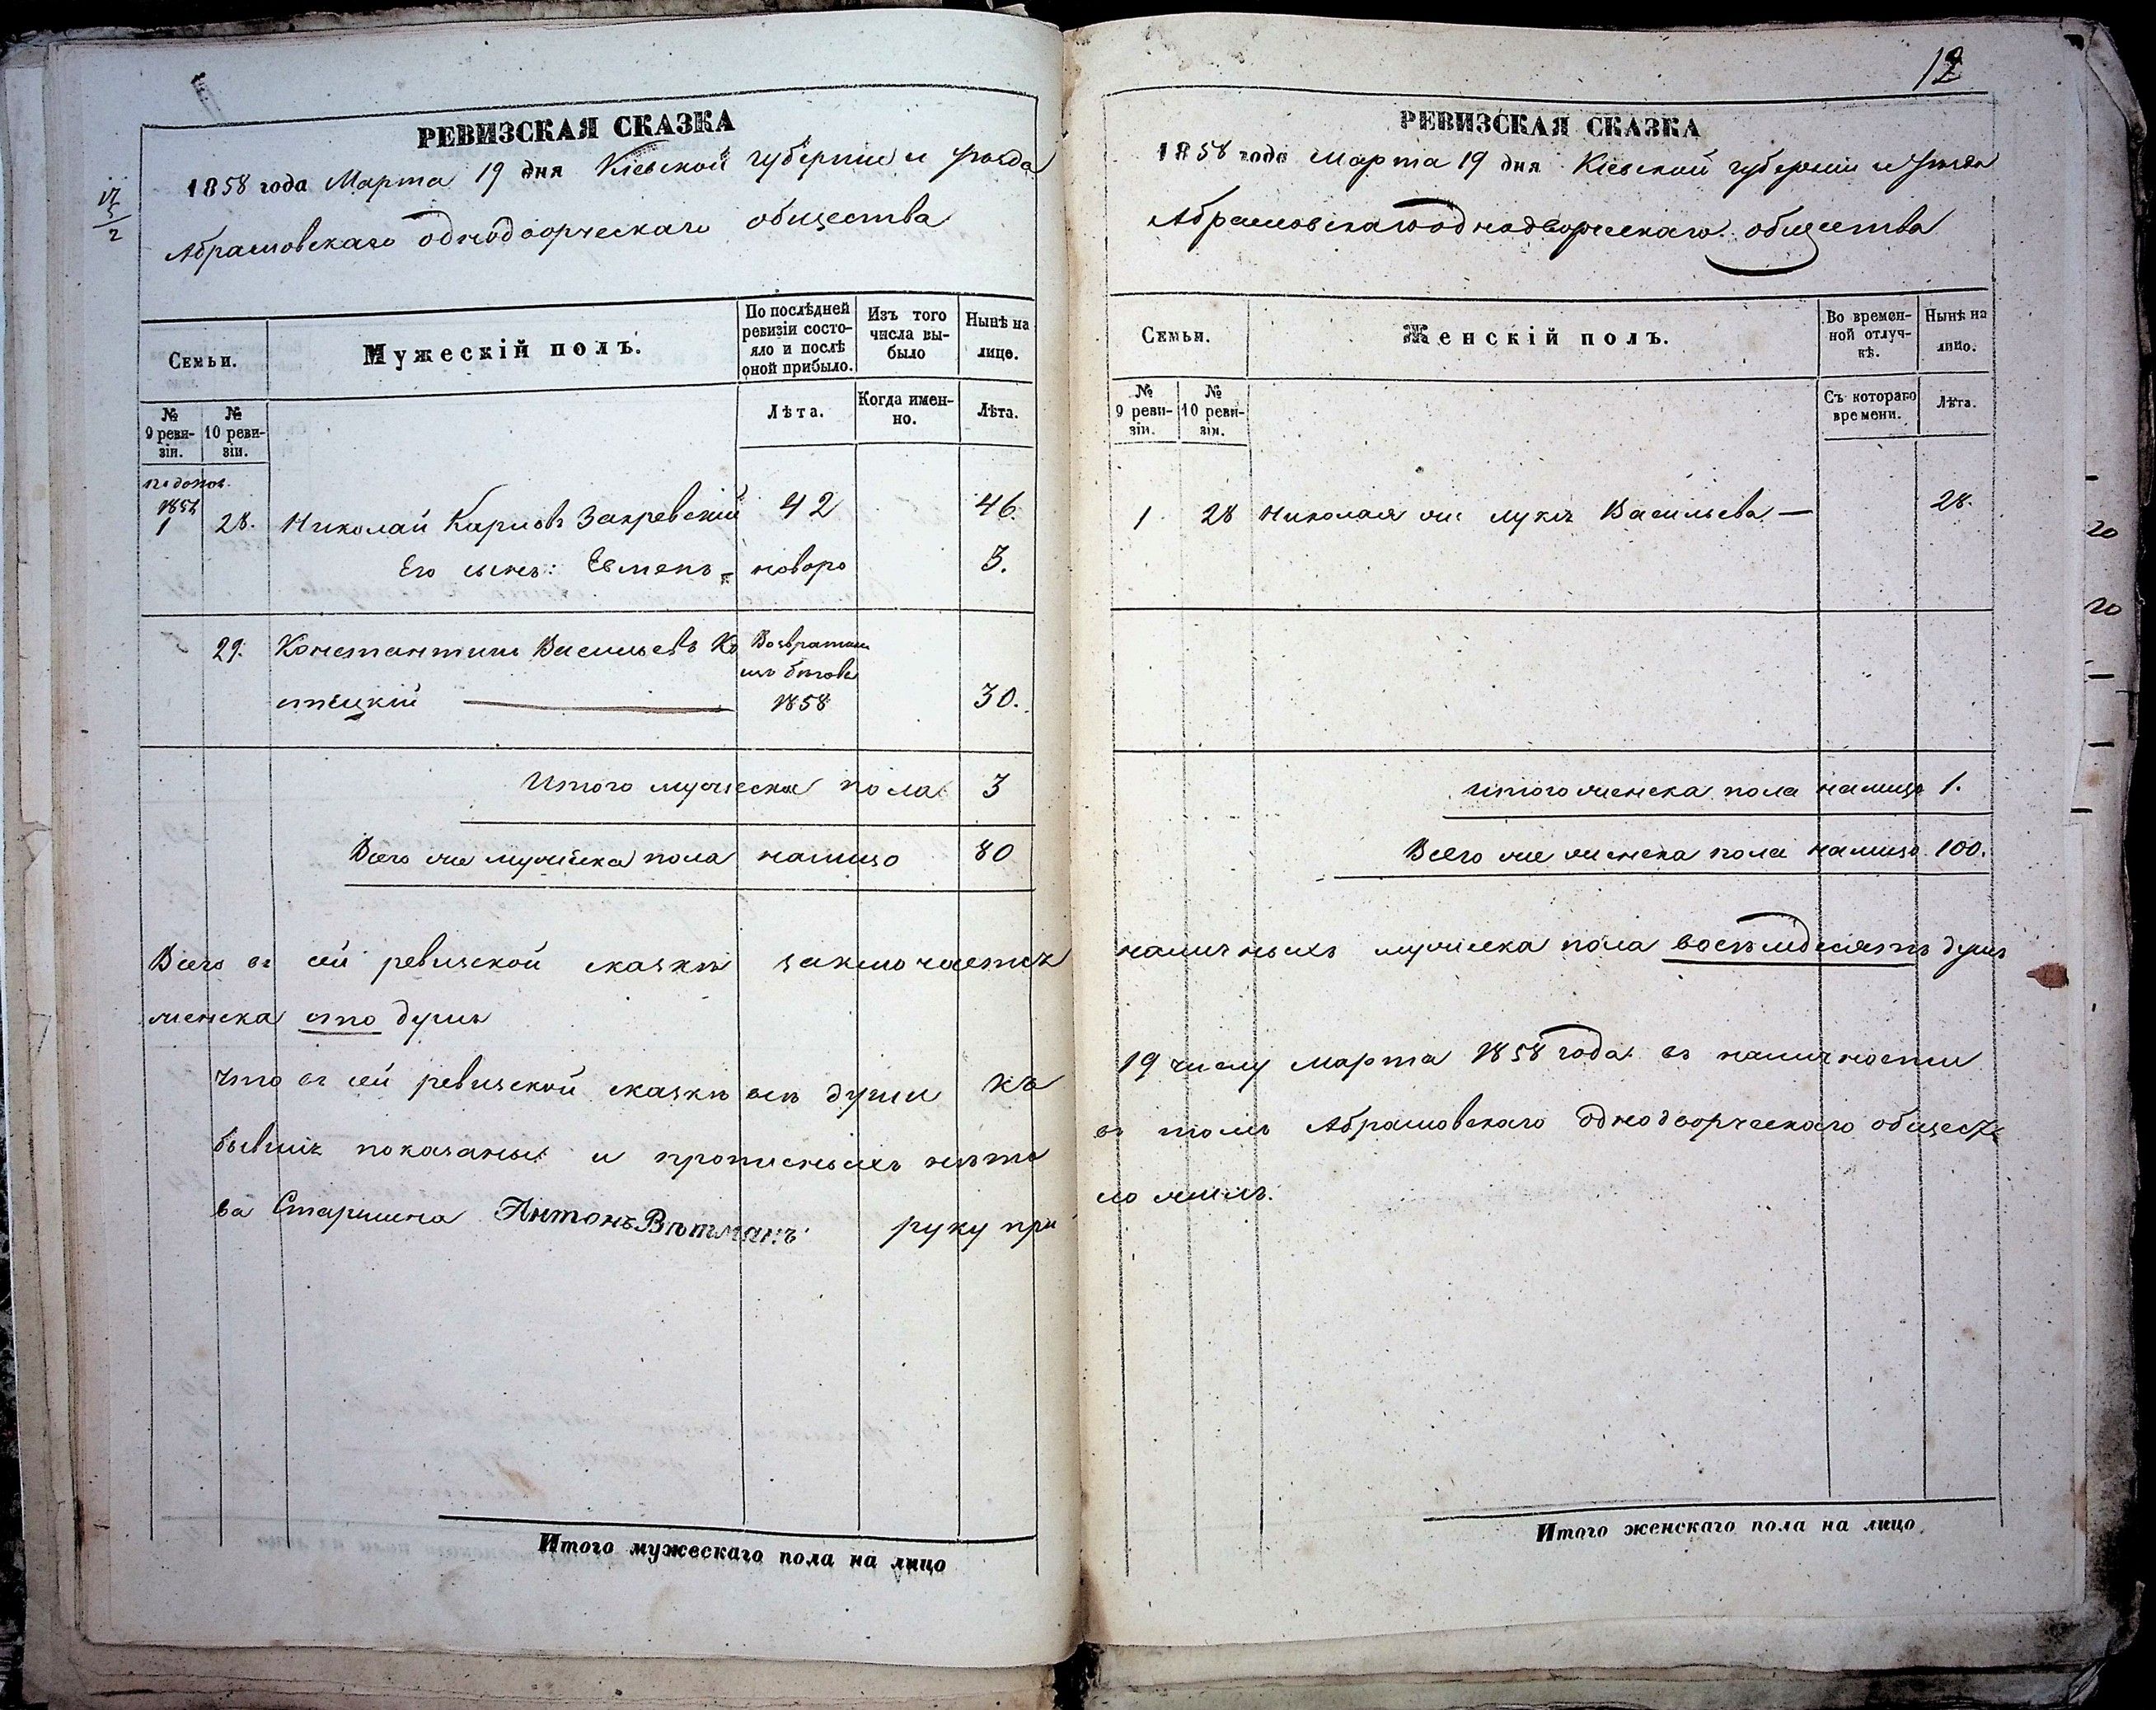 РЕВИЗСКАЯ СКАЗКА
1858 года Марта 19 дня Кіевской губерніи и уѣзда
Абрамовскаго однодворческаго общества
Семьи.
Мужескій полъ.
По послѣдней ревизіи состояло и послѣ оной прибыло.
Изъ того числа выбыло
Нынѣ на лицо.
№ 9 ревизіи.
№ 10 ревизіи.
Лѣта.
Когда именно.
Лѣта.
по допол.
1 28. Николай Карповъ Закревскій 42 46.
Его сынъ: новоро 3.
29. Константинъ Васильевъ Ко Возвратил
1858
стецкій 30.
Итого мужеска пола 3
Всего же мужеска пола налицо 80
Всего въ сей ревизской сказкѣ заключается
женска сто душъ
Что въ сей ревизской сказкѣ всѣ души къ
бывшіе показаны и прописныхъ нѣтъ
ва Старшина Антонъ Вѣтманъ руку при
12
РЕВИЗСКАЯ СКАЗКА
1858 года Марта 19 дня Кіевской губерніи и уѣзда
Абрамовскаго однодворческаго общества
Семьи.
Женскій полъ.
Во временной отлучкѣ.
Нынѣ на лицо.
№ 9 ревизіи.
№ 10 ревизіи.
Съ котораго времени.
Лѣта.
1 28 Николая Васильева — 28.
итого женска пола налицо 1.
Всего же женска пола налицо 100.
наличныхъ мужеска пола восемдесятъ душъ
19 числу марта 1858 года въ наличности
въ томъ Абрамовскаго однодворческаго общест
ложилъ.
Итого мужескаго пола на лицо
Итого женскаго пола на лицо